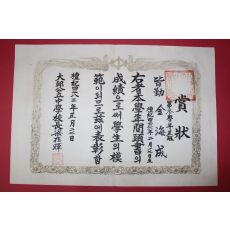 賞狀
皆勤 金海成
右者本學年間頭書의
成績으로써 學生의 模
範이 되므로 玆에 表彰함
檀紀四二八三年五月二日
大邱公立中學校長